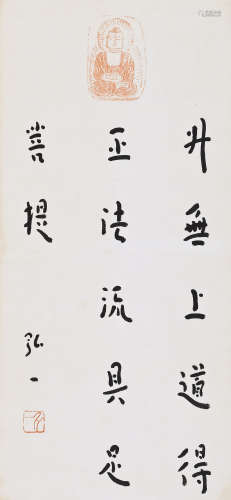 升無上道得
正法流具足
菩提
弘一